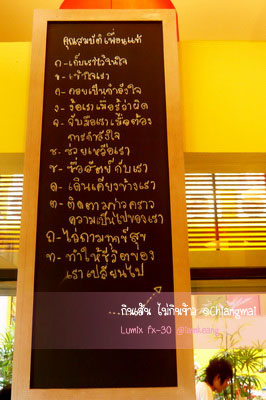 คุณสมบัติเพื่อนแท้
ก-เก็บเราไว้ในใจ
ข-เข้าใจเรา
ค-คอยเป็นกำลังใจ
ง-ง้อเราเมื่อรู้ว่าผิด
จ-จับมือเราเมื่อต้อง
การกำลังใจ
ช-ช่วยเหลือเรา
ซ-ซื่อสัตย์กับเรา
ด-เดินเคียงข้างเรา
ต-ติดตามข่าวคราว
ความเป็นไปของเรา
ถ-ไถ่ถามทุกข์สุข
ท-ทำให้ชีวิตของ
เราเปลี่ยนไป
กินเส้น ไม่กินข้าว @Chiangmai
Lumix fx-30